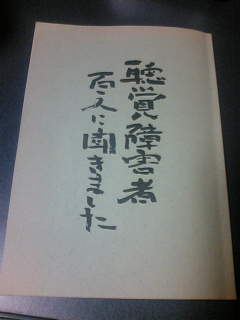 聴覚障害者
百人に聞きました